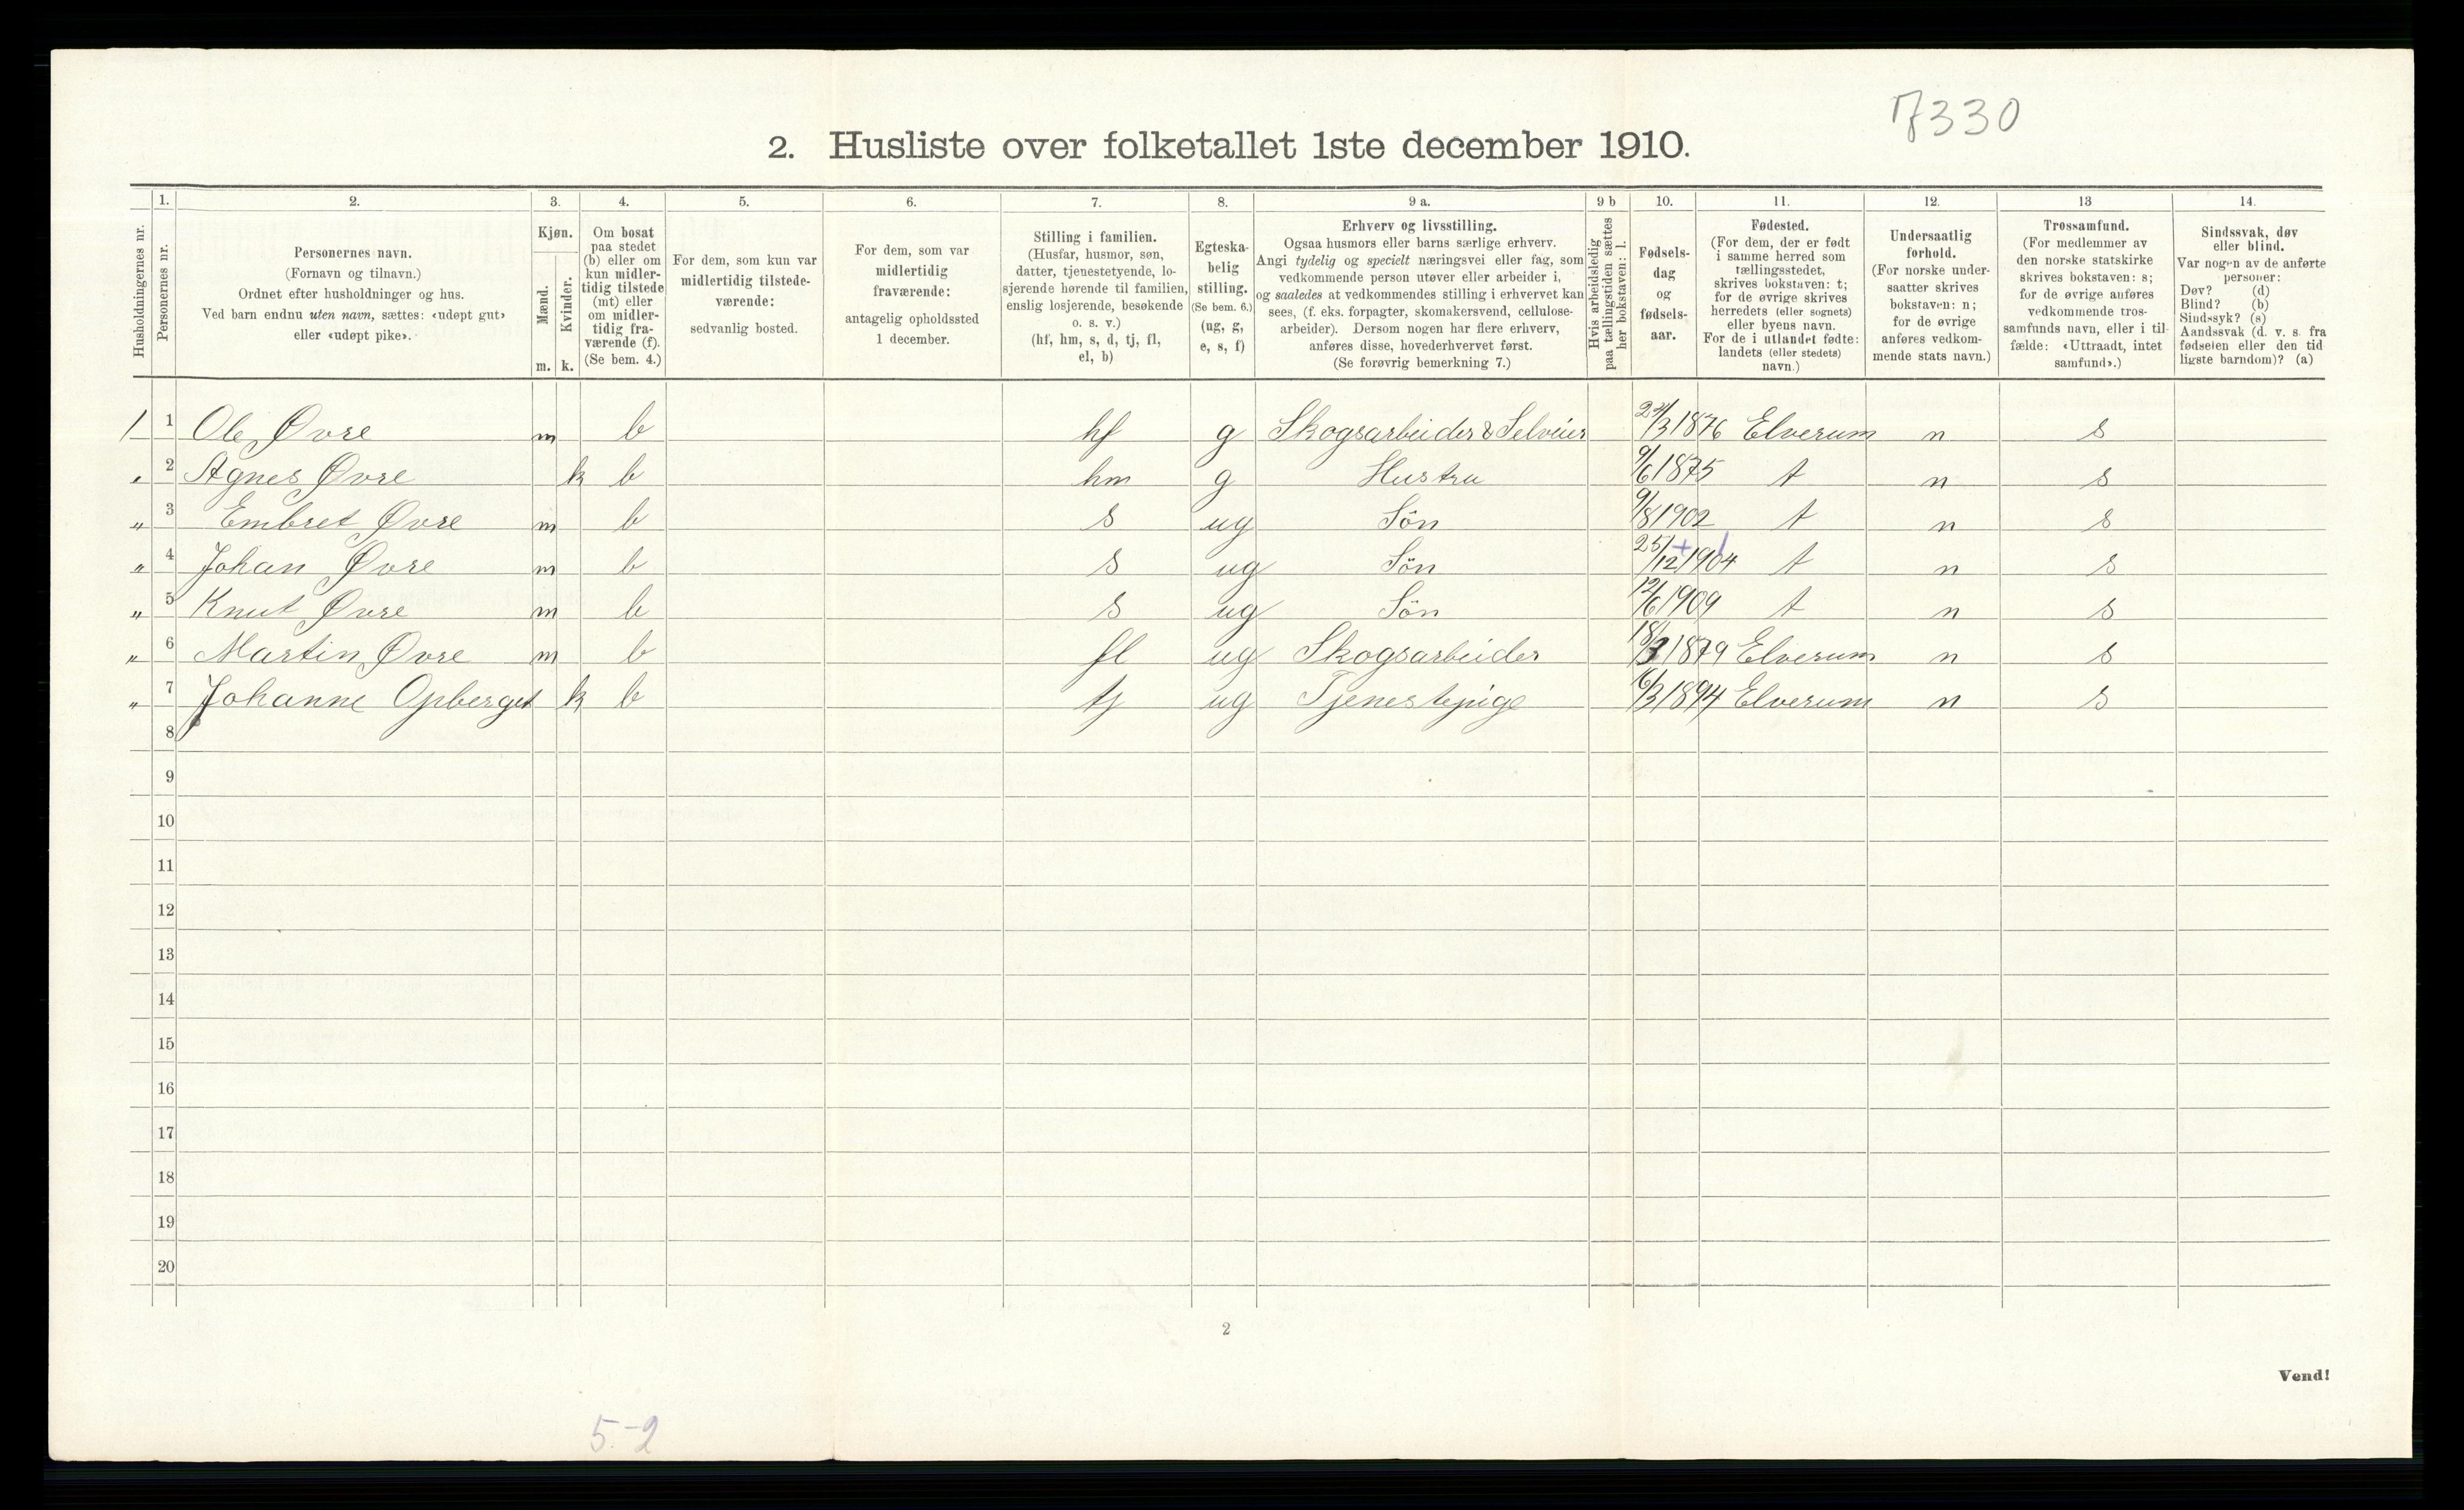 7330
2. Husliste over folketallet 1ste december 1910.
Husholdningernes nr.
1.
Personernes nr.
2.
Personernes navn.
(Fornavn og tilnavn.)
Ordnet efter husholdninger og hus.
Ved barn endnu uten navn, sættes: «udøpt gut»
eller «udøpt pike».
3.
Kjøn.
Mænd.
Kvinder.
m. k.
4.
Om bosat
paa stedet
(b) eller om
kun midler-
tidig tilstede
(mt) eller
om midler-
tidig fra-
værende (f).
(Se bem. 4.)
5.
For dem, som kun var
midlertidig tilstede-
værende:
sedvanlig bosted.
6.
For dem, som var
midlertidig
fraværende:
antagelig opholdssted
1 december.
7.
Stilling i familien.
(Husfar, husmor, søn,
datter, tjenestetyende, lo-
sjerende hørende til familien,
enslig losjerende, besøkende
o. s. v.)
(hf, hm, s, d, tj, fl,
el, b)
8.
Egteska-
belig
stilling.
(Se bem. 6.)
(ug, g,
e, s, f)
9 a.
Erhverv og livsstilling.
Ogsaa husmors eller barns særlige erhverv.
Angi tydelig og specielt næringsvei eller fag, som
vedkommende person utøver eller arbeider i,
og saaledes at vedkommendes stilling i erhvervet kan
sees, (f. eks. forpagter, skomakersvend, cellulose-
arbeider). Dersom nogen har flere erhverv,
anføres disse, hovederhvervet først.
(Se forøvrig bemerkning 7.)
9 b
Hvis arbeidsledig
paa tællingstiden sættes
her bokstaven: l.
10.
Fødsels-
dag
og
fødsels-
aar.
11.
Fødested.
(For dem, der er født
i samme herred som
tællingsstedet,
skrives bokstaven: t;
for de øvrige skrives
herredets (eller sognets)
eller byens navn.
For de i utlandet fødte:
landets (eller stedets)
navn.)
12.
Undersaatlig
forhold.
(For norske under-
saatter skrives
bokstaven: n;
for de øvrige
anføres vedkom-
mende stats navn.)
13
Trossamfund.
(For medlemmer av
den norske statskirke
skrives bokstaven: s;
for de øvrige anføres
vedkommende tros-
samfunds navn, eller i til-
fælde: «Uttraadt, intet
samfund».)
14.
Sindssvak, døv
eller blind.
Var nogen av de anførte
personer:
Døv? (d)
Blind? (b)
Sindssyk? (s)
Aandssvak (d. v. s. fra
fødselen eller den tid
ligste barndom)? (a)
1 1 Ole Øvre m b hf g Skogsarbeider & Selveier 24/3 1876 Elverum n s
" 2 Agnes Øvre k b hm g Hustru 9/6 1875 t n s
" 3 Embret Øvre m b s ug Sön 9/8 1902 t n s
" 4 Johan Øvre m b s ug Sön 25/12 1904 t n s
" 5 Knut Øvre m b s ug Sön 12/6 1909 t n s
" 6 Martin Øvre m b fl ug Skogsarbeider 18/3 1879 Elverum n s
" 7 Johanne Opberget k b tj ug Tjenestepige 16/3 1894 Elverum n s
8
9
10
11
12
13
14
15
16
17
18
19
20
2
Vend!
5-2